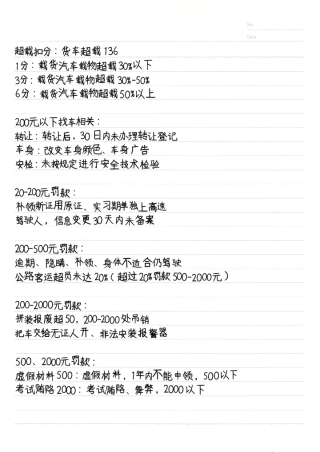 No.
Date
超载扣分：货车超载136
1分：载货汽车载物超载30%以下
3分：载货汽车载物超载30%-50%
6分：载货汽车载物超载50%以上
200元以下找车相关：
转让：转让后，30日内未办理转让登记
车身：改变车身颜色、车身广告
安检：未按规定进行安全技术检验
20-200元罚款：
补领新证用原证、实习期单独上高速
驾驶人，信息变更30天内未备案
200-500元罚款：
逾期、隐瞒、补领、身体不适合仍驾驶
公路客运超员未达20%（超过20%罚款500-2000元）
200-2000元罚款：
拼装报废超50，200-2000处吊销
把车交给无证人开、非法安装报警器
500、2000元罚款：
虚假材料500：虚假材料，1年内不能申领，500以下
考试贿赂2000：考试贿赂、舞弊，2000以下